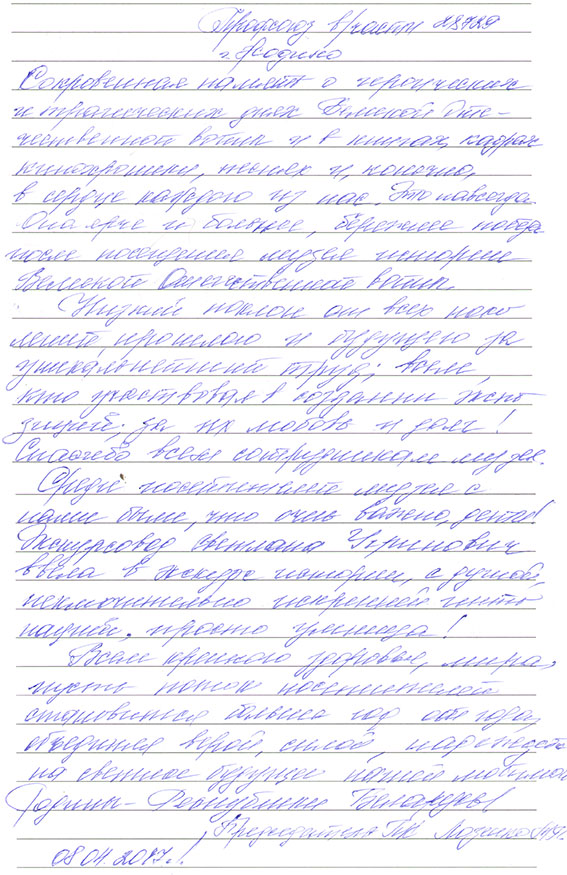 Профсоюз в/части 28729
г. Жодино
Сокровенная память о героических
и трагических днях Великой Оте-
чественной войны и в книгах, кадрах
кинохроники, песнях и, конечно,
в сердце каждого из нас. Это навсегда.
Она ярче и больнее, бережнее
после посещения музея истории
Великой Отечественной войны.
Низкий поклон от всех поко
лений, прошлого и будущего за
уникальнейший труд; всем,
кто участвовал в создании экспо
зиций, за их любовь и долг!
Спасибо всем сотрудникам музея.
Среди посетителей музея с
нами были, что очень важно, дети!
Экскурсовод Светлана
ввела в экскурс истории, с душой,
исключительно искренней инто
нацией, просто умница!
Всем крепкого здоровья, мира,
пусть поток посетителей
становится больше год от года,
объединяя верой, силой, надеждой
на светлое будущее нашей любимой
Родины - Республики Беларусь!
Председатель ПК
08.04.2017 г.